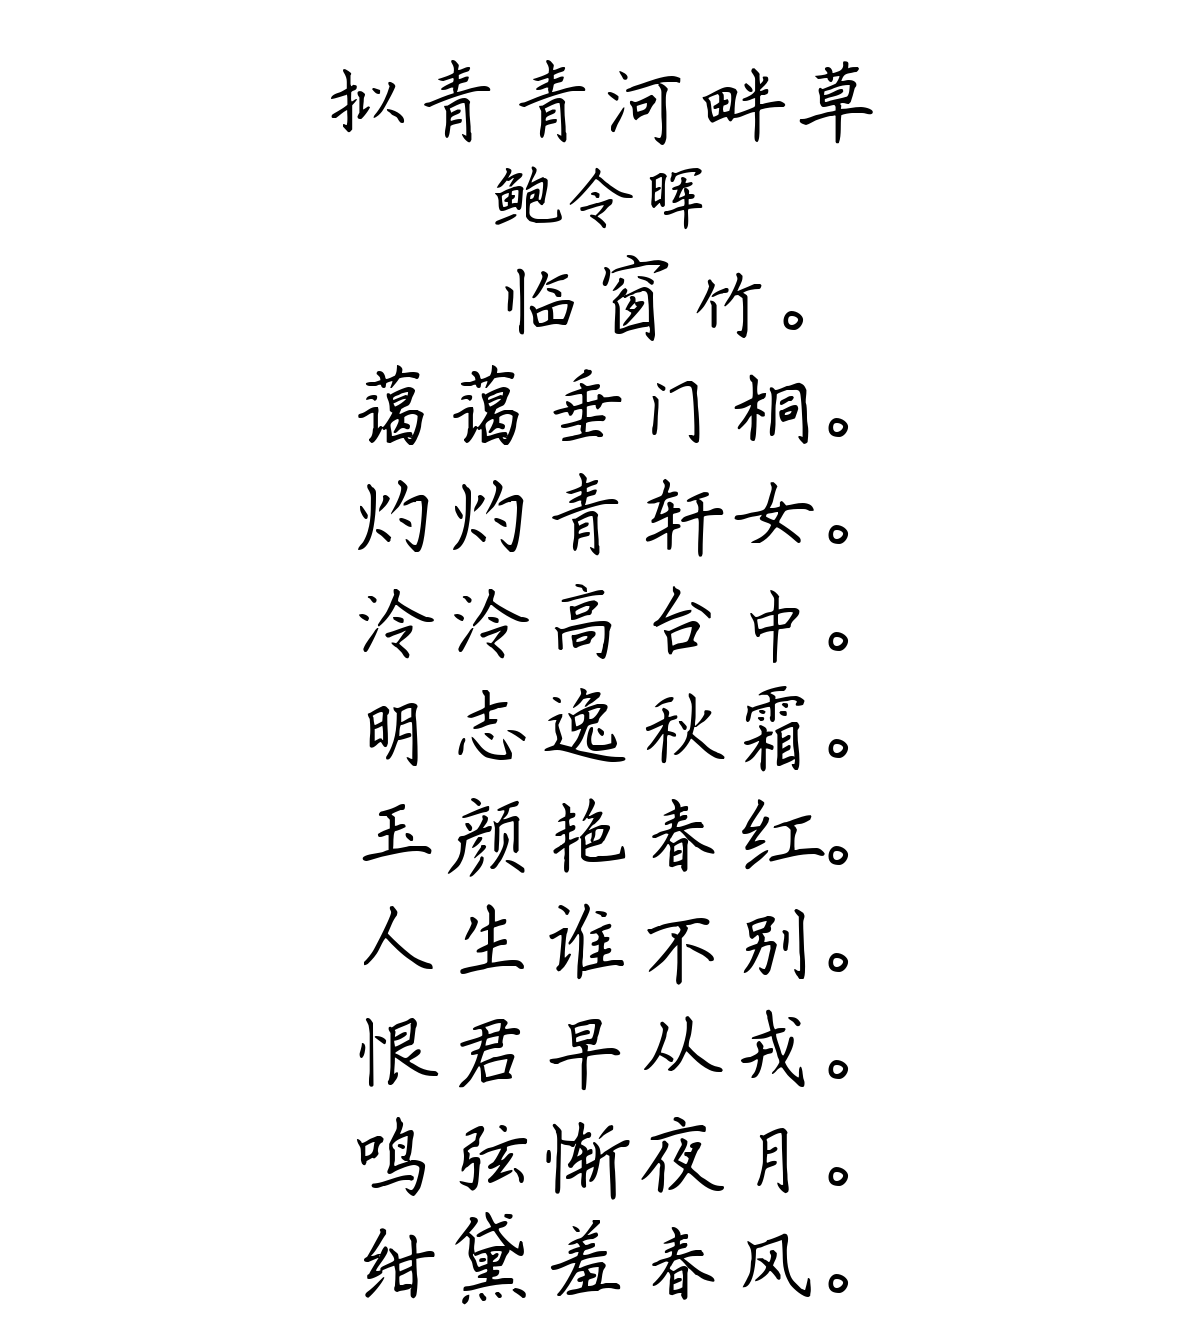 拟青青河畔草
鲍令晖
临窗竹。
蔼蔼垂门桐。
灼灼青轩女。
泠泠高台中。
明志逸秋霜。
玉颜艳春红。
人生谁不别。
恨君早从戎。
鸣弦惭夜月。
绀黛羞春风。